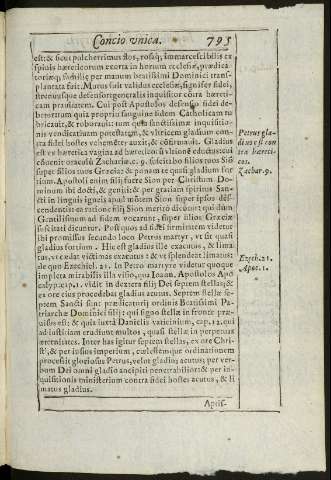 Concio vnica. 793
est: & sicut pulcherrimus flos, rosaq; immarcescibilis ex
spinis hæreticorum exorta in horum ecclesiæ, prædica-
toriæq; familiæ per manum beatissimi Dominici trans-
plantata fuit. Murus fuit validus ecclesiæ, signifer fidei,
strenuusque defensor generalis inquisitor cōtra hæreti-
cam prauitatem. Cui post Apostolos defensio fidei de-
bebatur
quia proprium sanguinem fidem Catholicam
, & roborauit: tum quia sanctissimum inquisitio-
nis vendicatiuum potestatem, & vltricem gladium con-
tra fidei hostes vehementer auxit, & cōfirmauit. Gladius
est ex hæretica vagina ad hæreticorū vltionē eductus: cui
cōuenit oraculū Zachariæ c. 9. suscitabo filios tuos Siō
super filios tuos Græcia: & ponam te quasi gladium for
tium. Apostoli enim filij fuere Sion per Christum Do-
minum ibi docti, & geniti: & per gratiam spiritus San-
cti in linguis igneis apud mōtem Sion super ipsos
ratione filij Sion meritò dicuntur qui dum
Gentilissimum ad fidem vocarunt, super filios Græciæ
suscitati dicuntur. Post quos ad
ibi promissus secundo loco Petrus martyr, vt sit quasi
gladius fortium. Hic est gladius ille exacutus, & lima
tus, vt cædat victimas exacutus: & vt splendeat limatus:
de quo Ezechiel. 21. In Petro martyre videtur quoque
impleta mirabilis illa visio, qua Ioann. Apostolus Apo
calyp: cap. 1. vidit in dextera filij Dei septem stellas; &
ex ore eius procedebat gladius acutus. Septem stellæ se-
ptem Sancti sunt prædicatorij ordinis Beatissimi Pa-
triarchæ Dominici filij; qui signo stellæ in fronte præ-
uisos est; & quia iuxta Danielis vaticinium, cap. 12. qui
ad iustitiam erudiunt multos, quasi stellæ in perpetuas
æternitates. Inter has igitur septem stellas, ex ore Chri-
sti, & per iussus imperium, cælestemque ordinationem
processit gloriosus Petrus, velut gladius acutus; per ver-
bum Dei omni gladio ancipiti penetrabiliorē & per in-
quisitionis ministerium contra fidei hostes acutus, & li
matus gladius.
Aptis-
Petrus gla-
dius est con
tra hæreti-
cos.
Zachar. 9.
Ezech. 21.
Apoc. 1.